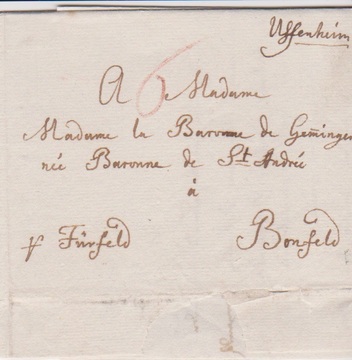 Uffenheim
A 6 Madame
Madame la Baronne de Gem̄ingen
née Baronne de St André
à
Fürfeld Bonfeld